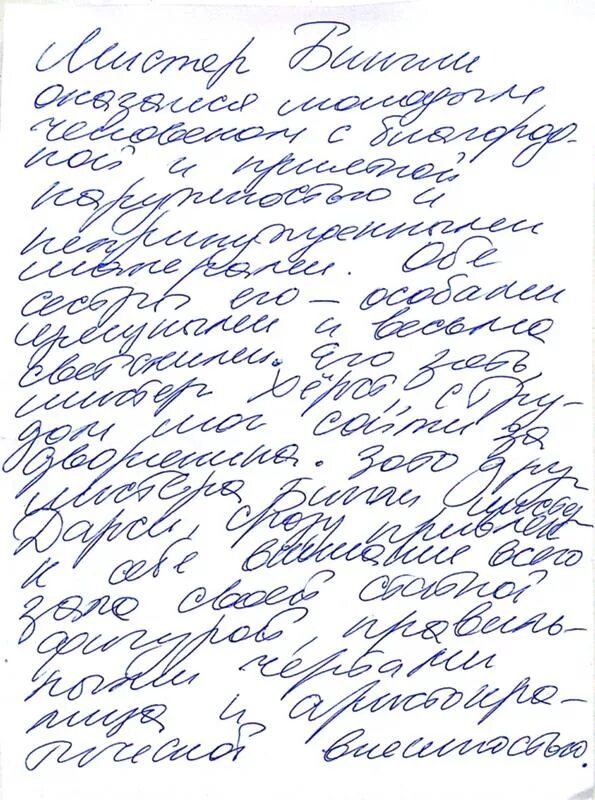 Мистер Бингли
оказался молодым
человеком с благород-
ной и приятной
наружностью и
непринужденными
манерами. Обе
сестры его – особами
изящными и весьма
светскими. Его зять,
мистер Хёрст, с тру-
дом мог сойти за
дворянина. Зато друг
мистера Бингли мистер
Дарси, сразу привлек
к себе внимание всего
зала своей статной
фигурой, правиль-
ными чертами
лица и аристокра-
тической внешностью.